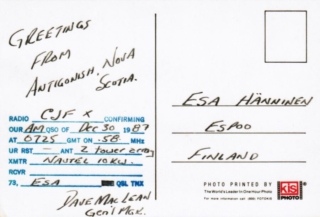 GREETINGS
FROM
ANTIGONISH, NOVA
SCOTIA.
RADIO CJFX CONFIRMING
OUR AM QSO OF DEC 30 1987
AT 0725 GMT ON .58 MHz
UR RST — ANT 2 tower array
XMTR NAUTEL 10KW.
RCVR
73, ESA QSL TNX
DAVE MACLEAN
GEN'L MGR.
ESA HÄNNINEN
ESPOO
FINLAND
PHOTO PRINTED BY
The World's Leader in One-Hour Photo
KIS
PHOTO